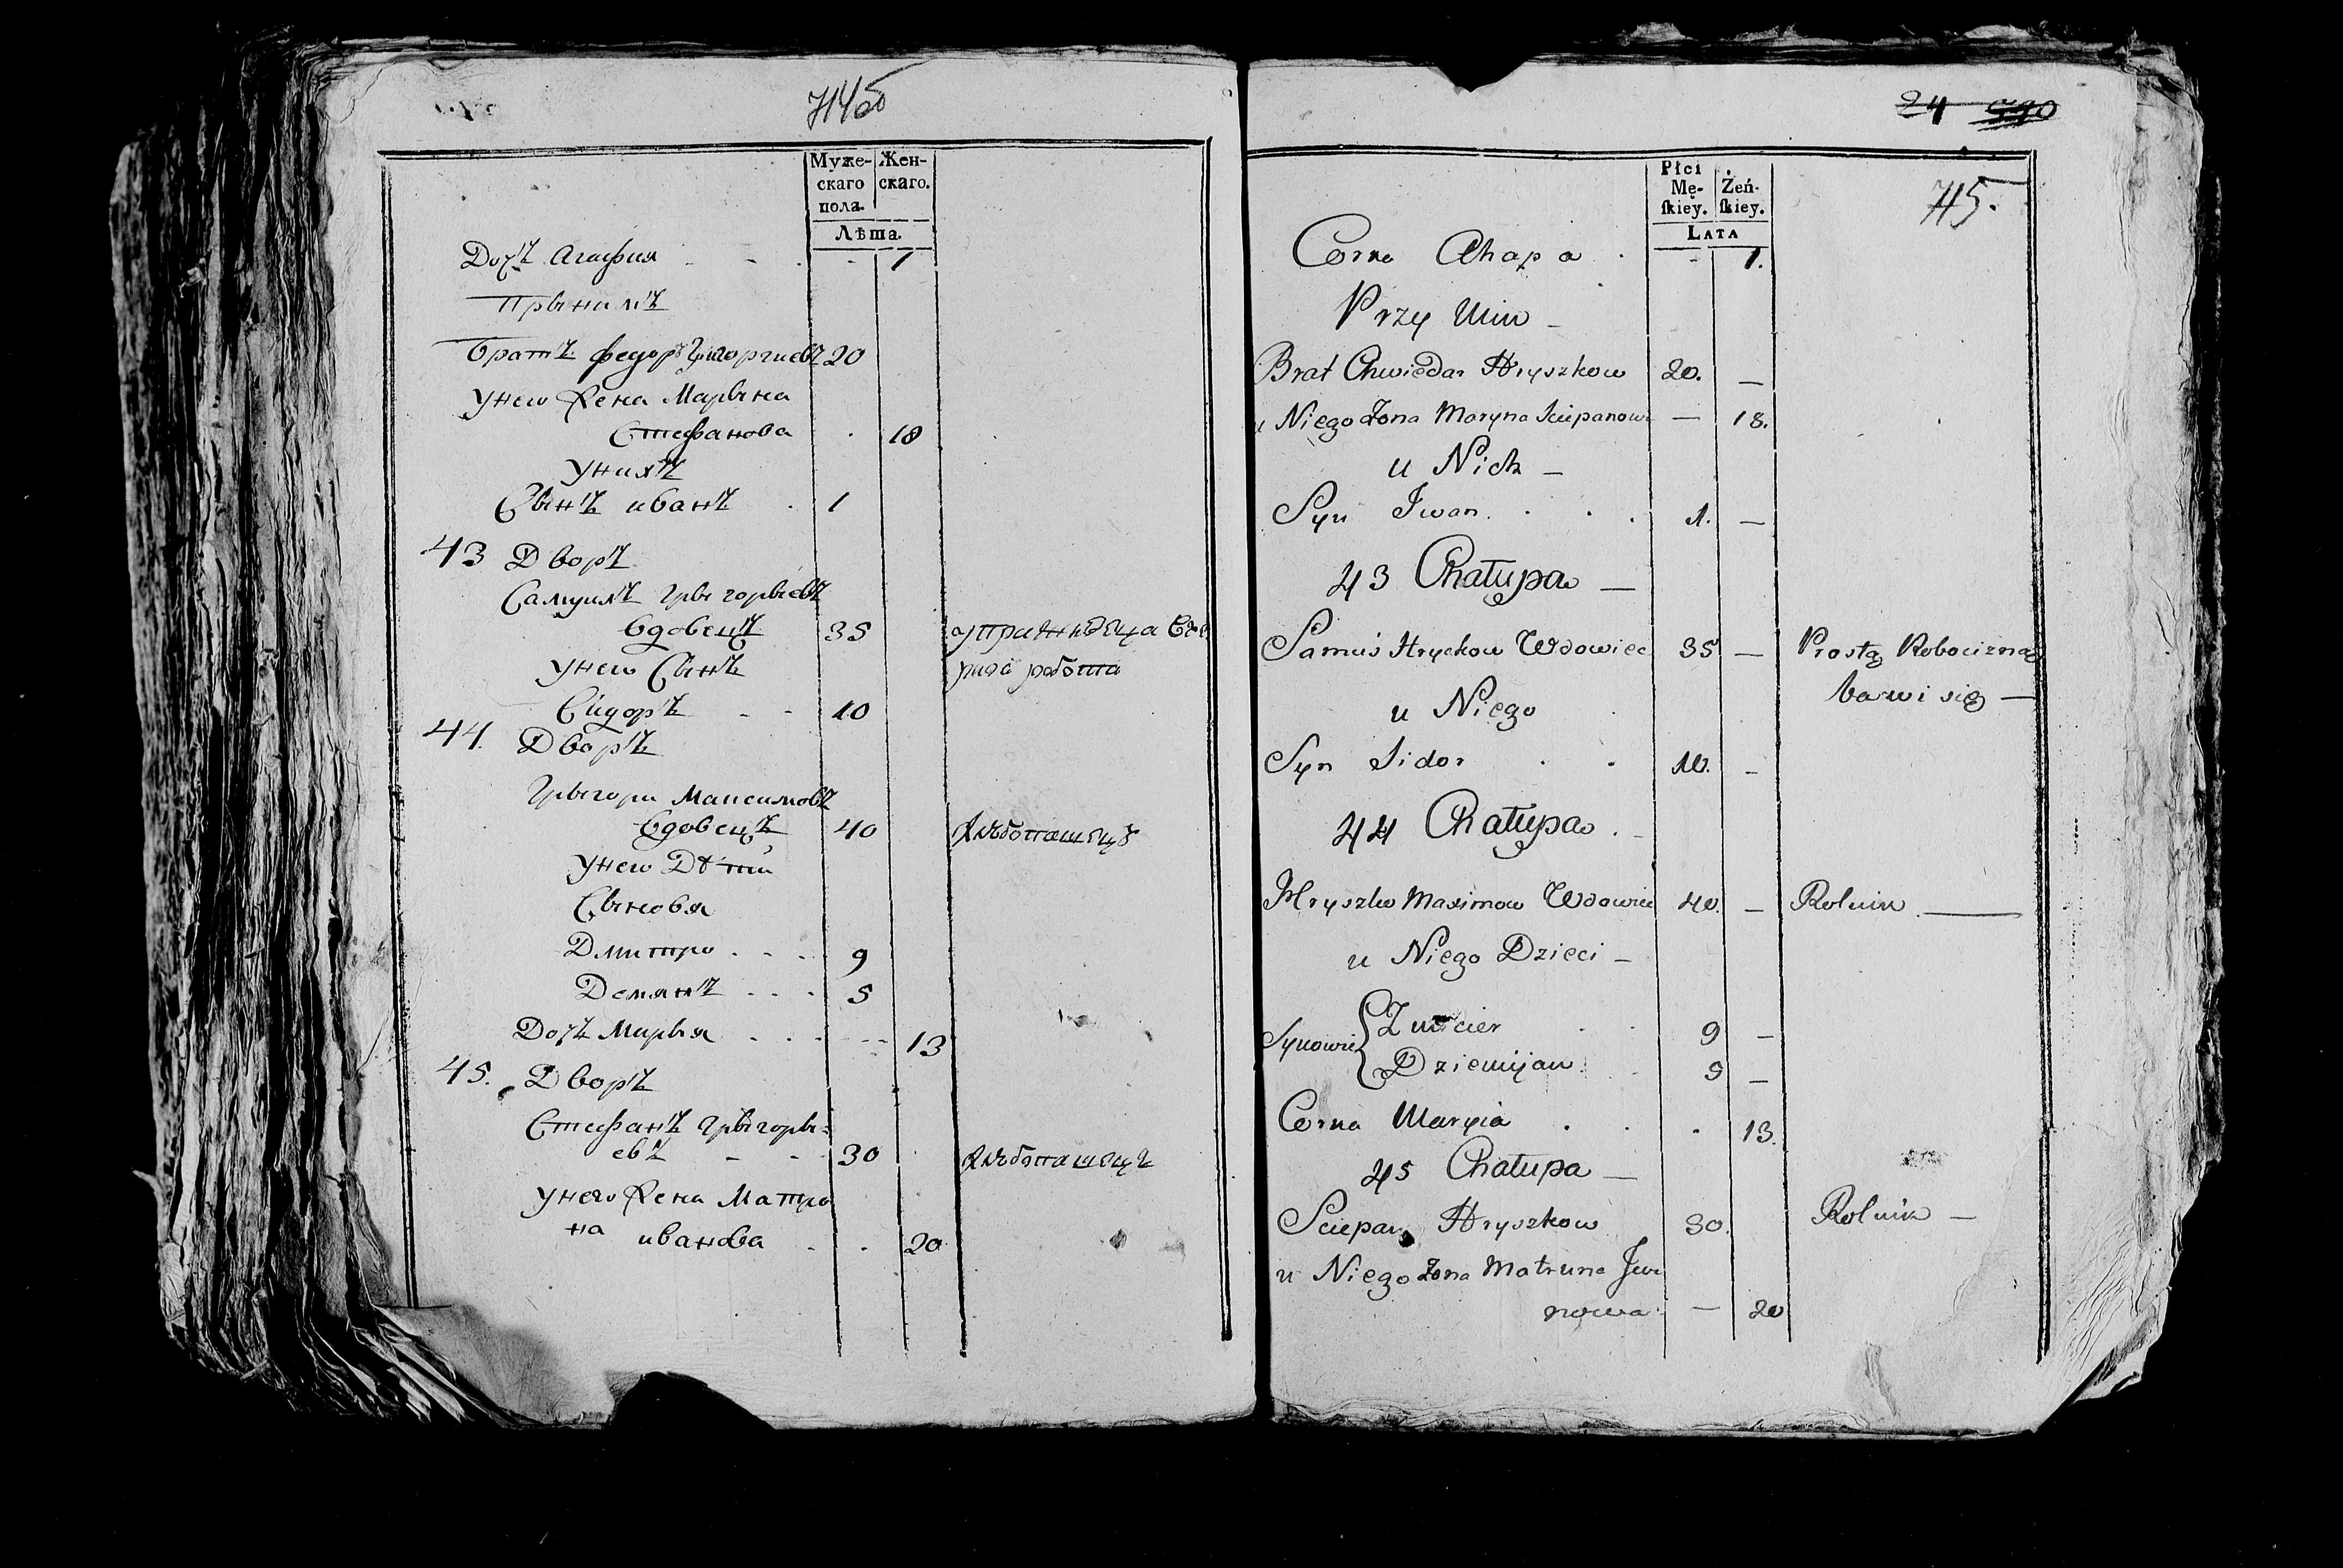 714об
Муже-
скаго
пола.
Жен-
скаго.
Лѣта.
Дочъ Агафия 1
При нимъ
братъ федоръ Григоргиевъ 20
Унего Жена Марына
Стефанова 18
Унихъ
Сынъ иванъ 1
43 Дворъ
Самуилъ Грыгорьевъ
вдовецъ 35
Унего Сынъ
работа
Сидоръ 10
44. Дворъ
Грыгори Максимовъ
вдовецъ 40 хлѣбопашецъ
Унего Дѣти
Сыновя
Дмитро 9
Демянъ 5
Дочъ Марья 13
45. Дворъ
Стефанъ Грыгоры-
евъ 30 хлѣбопашецъ
Унего Жена Матро
на иванова 20
24
715.
Płci
Mę-
ſkiey.
Żeń-
ſkiey.
Lata
Corka Ahapa 1.
Przy Nim
Brat Chwiedar Hryszkow 20. —
u Niego Żona Maryna Sciepanowa — 18.
u Nich —
Syn Iwan 1. —
43 Chałupa —
Samuś Hryckow Wdowiec 35 — Prostą Robocizną
bawi się —
u Niego
Syn Sidor 10. -
44 Chałupa
Hryszko Maximow Wdowiec 40. — Rolnik
u Niego Dzieci —
Synowie { Zmicier 9 —
Dziemijan 5 —
Corka Maryia 13.
45 Chałupa —
Sciepan Hryszkow 30. Rolnik —
u Niego Żona Matruna Iwa
nowa — 20